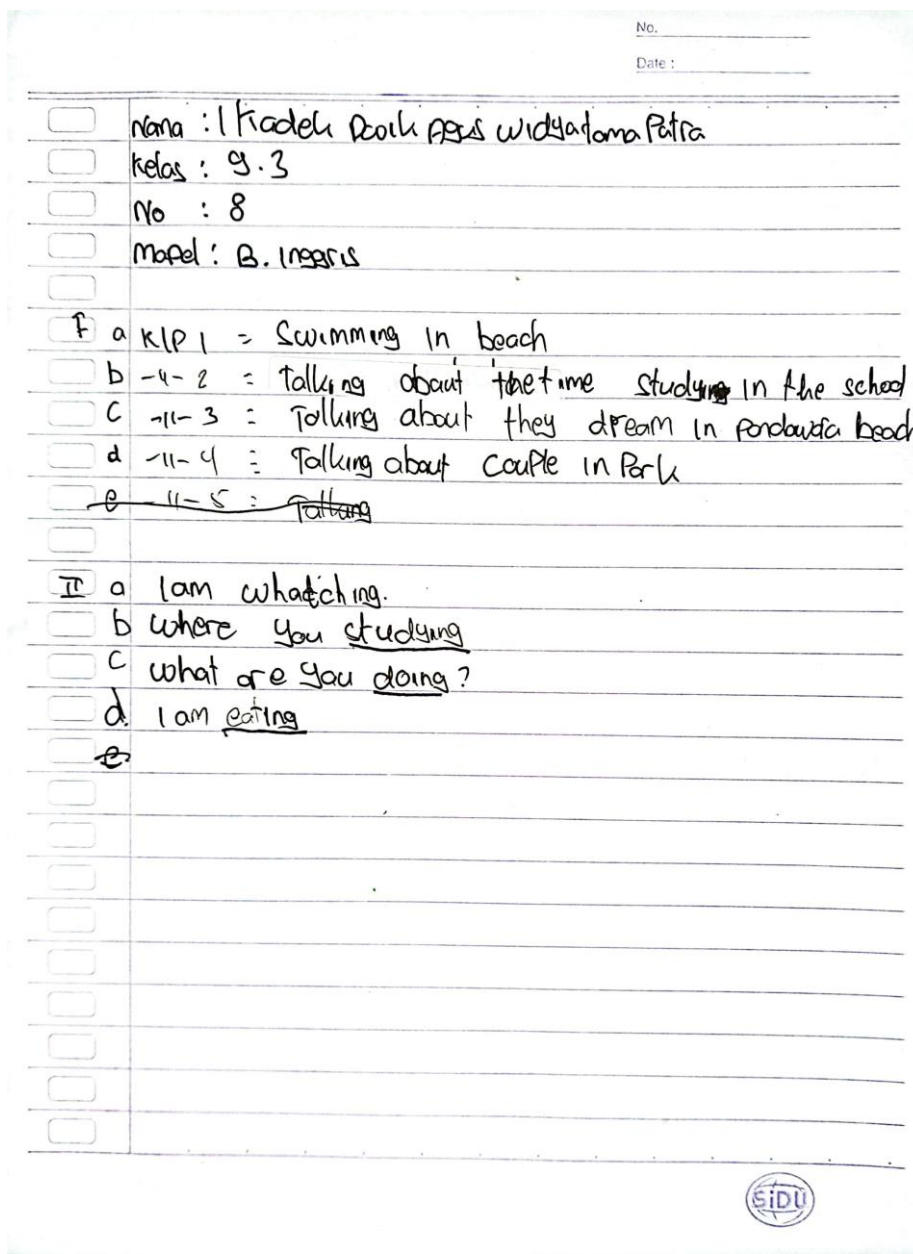 No.
Date :
Nama : I Kadek Agus Widyatama Patra
Kelas : 9.3
No : 8
Mapel : B. Inggris
I a Klp 1 = Swimming in beach
b -4- 2 = Talking about the time studying in the school
c -11- 3 = Talking about they dream in beach
d -11- 4 = Talking about couple in Park
e -11- 5 : Talkang
II a I am whatching.
b where you studying
c what are you doing?
d. I am eating
e
SiDU